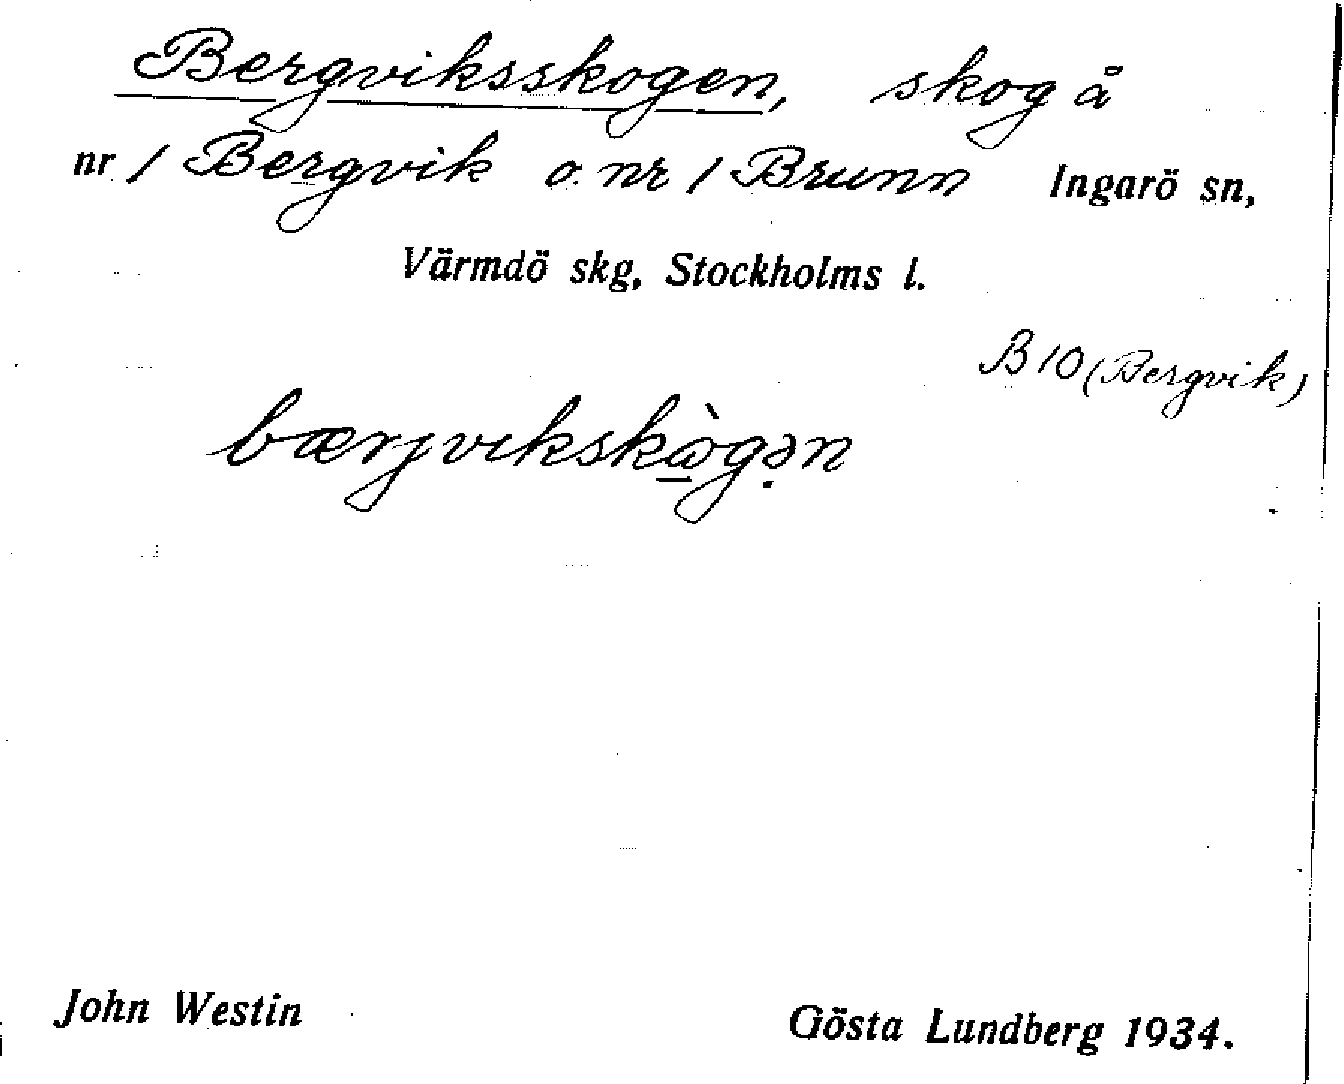 Bergviksskogen, skog å
nr 1 Bergvik o. nr 1 Brunn Ingarö sn,
Värmdö skg, Stockholms l.
B 10 (Bergvik)
bærjvikskὼgən
John Westin Gösta Lundberg 1934.